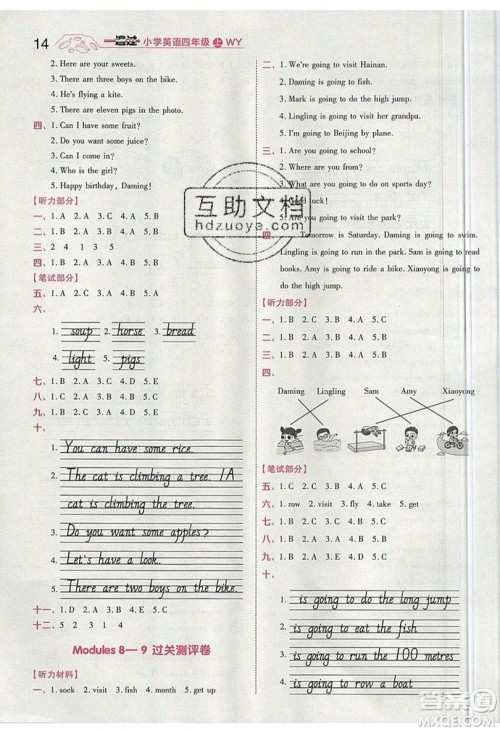 14 一遍过 小学英语四年级 上 WY
2. Here are your sweets.
3. There are three boys on the bike.
4. He's flying a kite.
5. There are eleven pigs in the photo.
四、1. Can I have some fruit?
2. Do you want some juice?
3. Can I come in?
4. Who is the girl?
5. Happy birthday, Daming!
【听力部分】
一、1. A 2. A 3. C 4. A 5. B
二、1. B 2. C 3. C 4. A 5. B
三、2 4 1 3 5
四、1. A 2. A 3. B 4. A 5. B
【笔试部分】
五、1. A 2. B 3. A 4. A 5. B
六、
1. soup 2. horse 3. bread
4. light 5. pigs
七、1. B 2. A 3. C 4. D 5. E
八、1. B 2. C 3. A 4. B 5. C
九、1. B 2. A 3. C 4. D 5. E
十、
1. You can have some rice.
2. The cat is climbing a tree. / A
cat is climbing the tree.
3. Do you want some apples?
4. Let's have a look.
5. There are two boys on the bike.
十一、1. D 2. A 3. B 4. C
十二、2 5 4 3 1
Modules 8— 9 过关测评卷
【听力材料】
一、1. sock 2. visit 3. fish 4. month 5. get up
二、1. We're going to visit Hainan.
2. Daming is going to
3. Mark is going to do the high jump.
4. Lingling is going to visit her grandpa.
5. I'm going to Beijing by plane.
三、1. Are you going to school?
2.
3. What are you going to do on sports day?
4. Good luck!
5. Are you going to visit the park?
四、 Tomorrow is Saturday. Daming is going to swim.
Lingling is going to run. Sam is going to do the long
jump. Amy is going to ride a bike. Xiaoyong is going to
do the high jump.
【听力部分】
一、1. B 2. C 3. B 4. A 5. C
二、1. B 2. A 3. C 4. A 5. B
三、1. B 2. A 3. A 4. B 5. A
四、
Daming Lingling Sam Amy Xiaoyong
【笔试部分】
五、1. C 2. A 3. C 4. A 5. C
六、1. row 2. visit 3. fly 4. take 5. get
七、1. B 2. A 3. A 4. B 5. A
八、1. B 2. A 3. C 4. B 5. B
九、1. B 2. A 3. C 4. D 5. E
十、
1. is going to do the long jump
2. is going to eat the fish
3. is going to run the 100 metres
4. is going to row a boat
互助文档
hdzuoye.com
答案圈
MXQE.COM